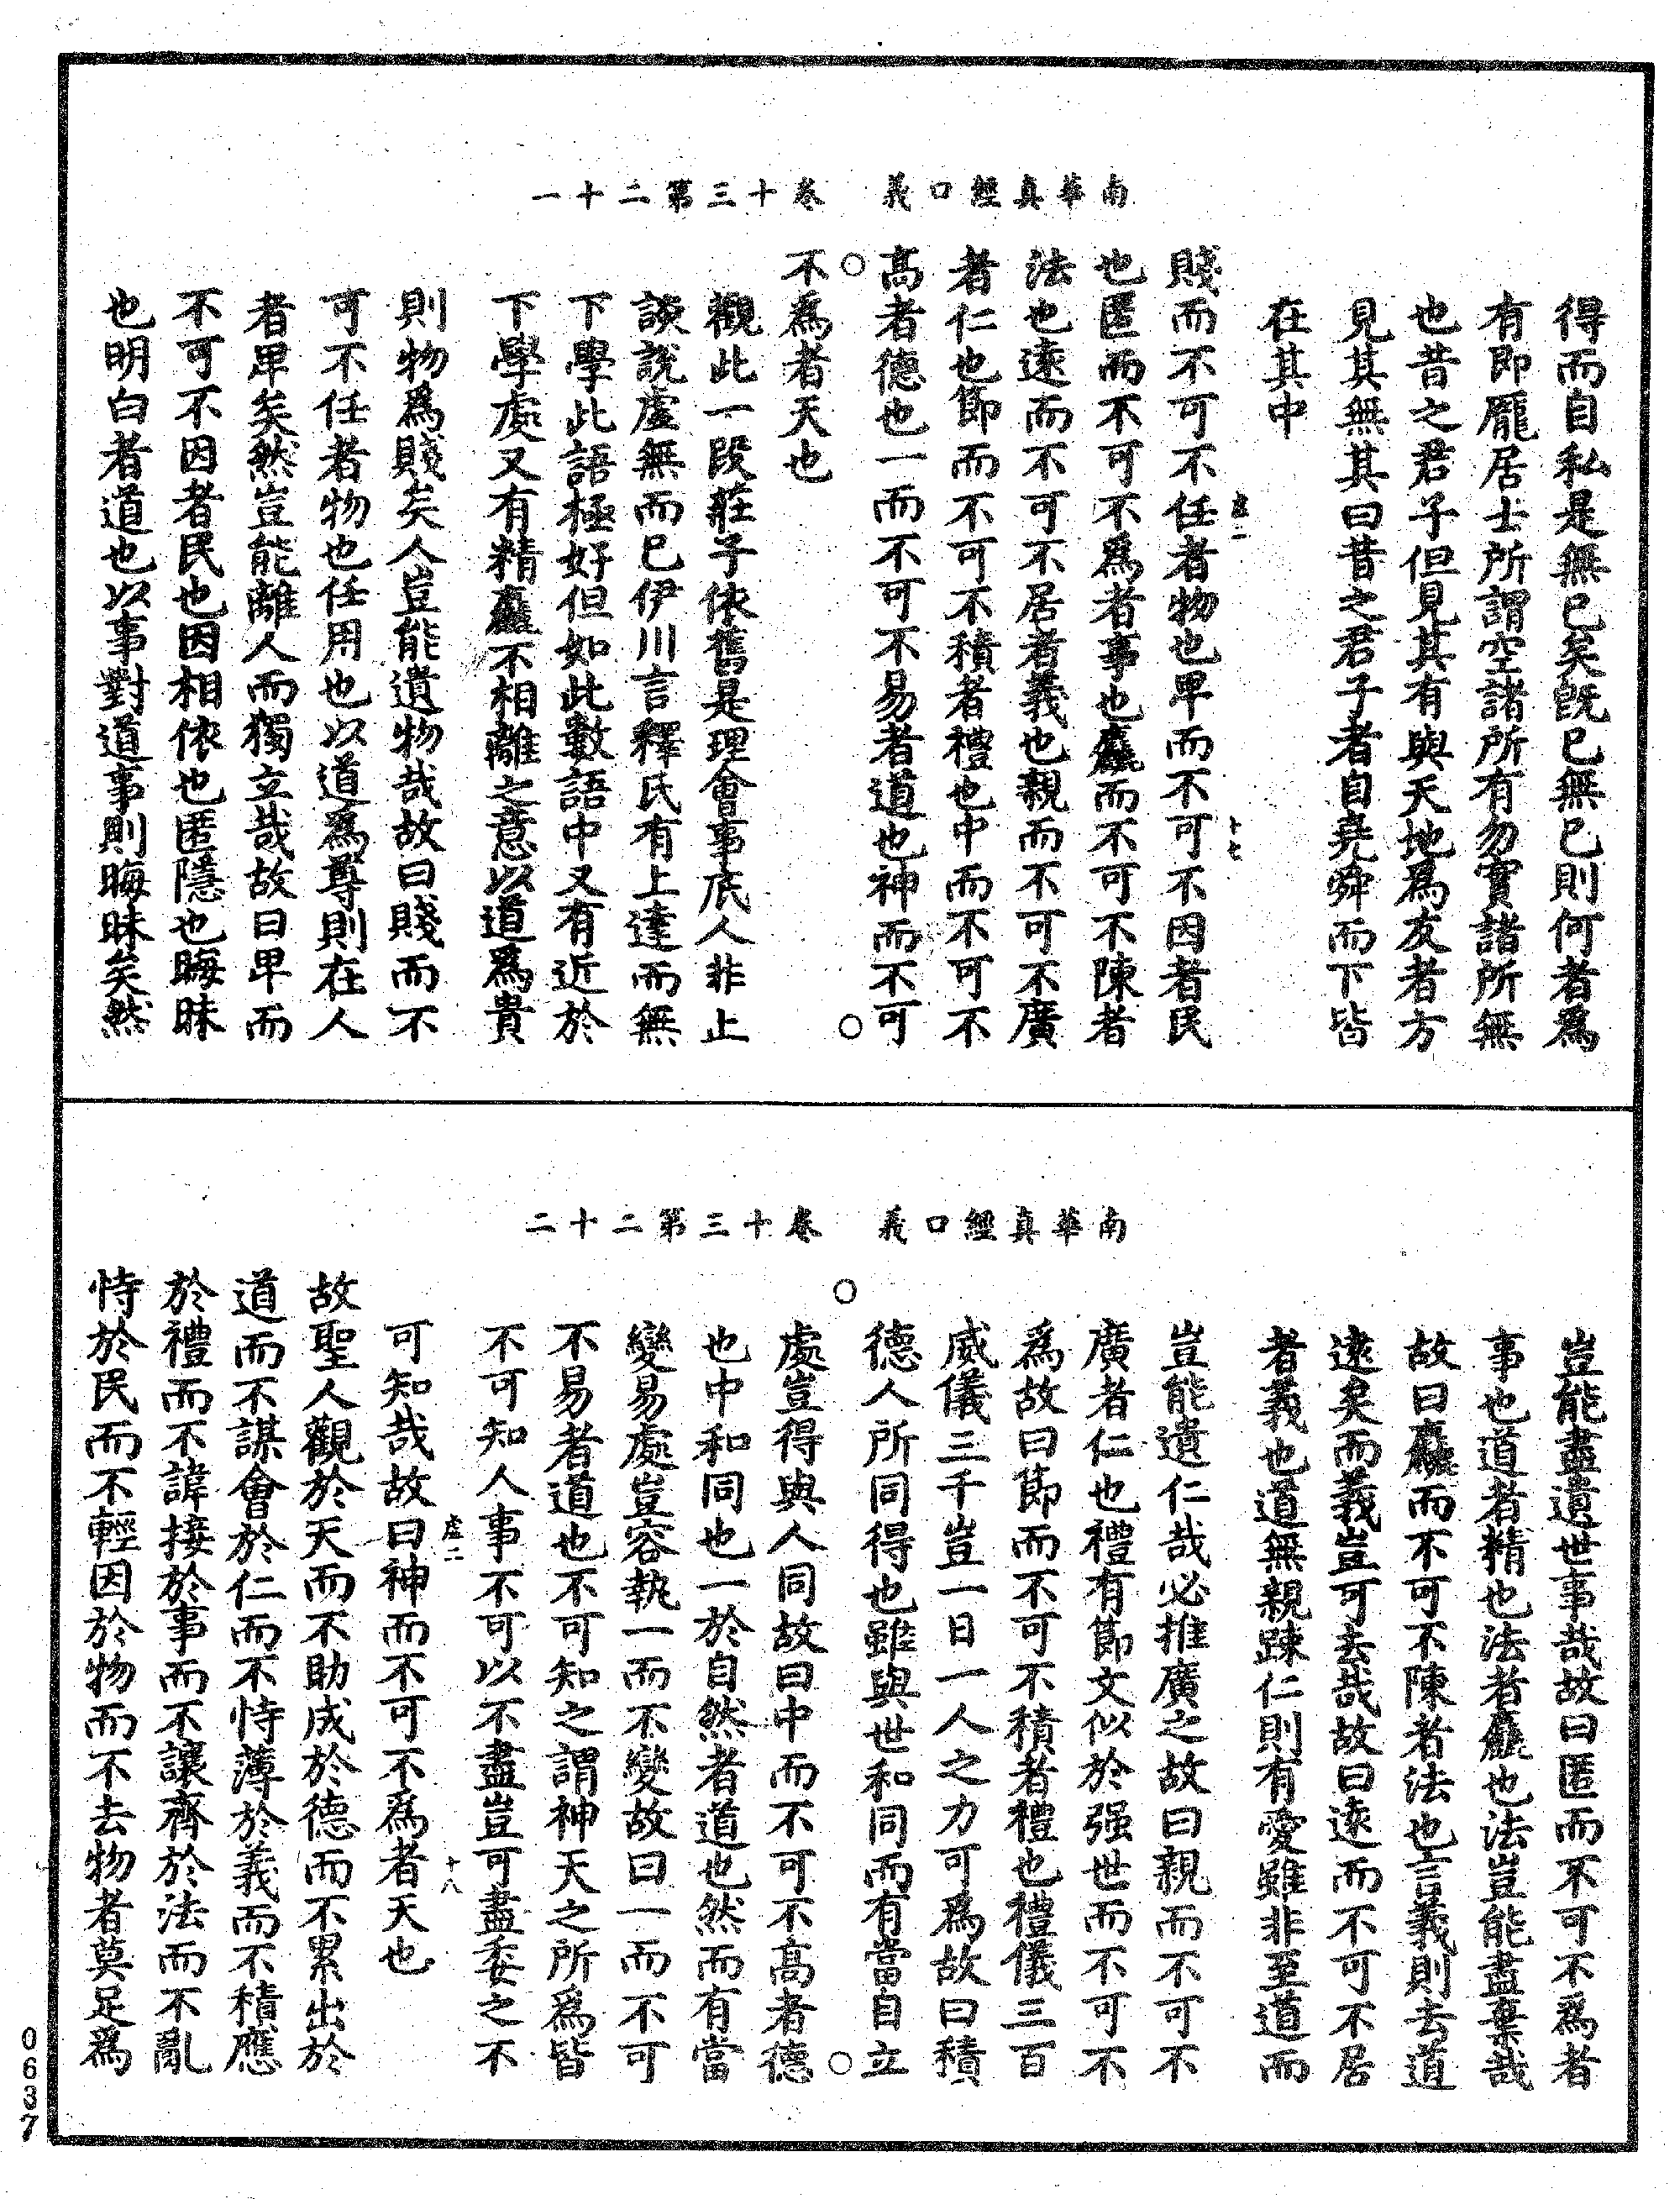 南華真經口義　卷十三第二十一
得而自私是無已矣旣已無已則何者爲
有即龐居士所謂空諸所有勿實諸所無
也昔之君子但見其有與天地爲友者方
見其無其曰昔之君子者自堯舜而下皆
在其中
虛二　十七
賤而不可不任者物也卑而不可不因者民
也匿而不可不爲者事也麤而不可不陳者
法也遠而不可不居者義也親而不可不廣
者仁也節而不可不積者禮也中而不可不
高者德也一而不可不易者道也神而不可
不爲者天也
觀此一段莊子依舊是理會事底人非止
談說虛無而已伊川言釋氏有上達而無
下學此語極好但如此數語中又有近於
下學處又有精麤不相離之意以道爲貴
則物爲賤矣人豈能遺物哉故曰賤而不
可不任者物也任用也以道爲尊則在人
者卑矣然豈能離人而獨立哉故曰卑而
不可不因者民也因相依也匿隱也晦昧
也明白者道也以事對道事則晦昧矣然
南華真經口義　卷十三第二十二
豈能盡遺世事哉故曰匿而不可不爲者
事也道者精也法者麤也法豈能盡棄哉
故曰麤而不可不陳者法也言義則去道
遠矣而義豈可去哉故曰遠而不可不居
者義也道無親踈仁則有愛雖非至道而
豈能遺仁哉必推廣之故曰親而不可不
廣者仁也禮有節文似於强世而不可不
爲故曰節而不可不積者禮也禮儀三百
威儀三千豈一日一人之力可爲故曰積
德人所同得也雖與世和同而有當自立
處豈得與人同故曰中而不可不高者德
也中和同也一於自然者道也然而有當
變易處豈容執一而不變故曰一而不可
不易者道也不可知之謂神天之所爲皆
不可知人事不可以不盡豈可盡委之不
虛二　十八
可知哉故曰神而不可不爲者天也
故聖人觀於天而不助成於德而不累出於
道而不謀會於仁而不恃薄於義而不積應
於禮而不諱接於事而不讓齊於法而不亂
恃於民而不輕因於物而不去物者莫足爲
0637